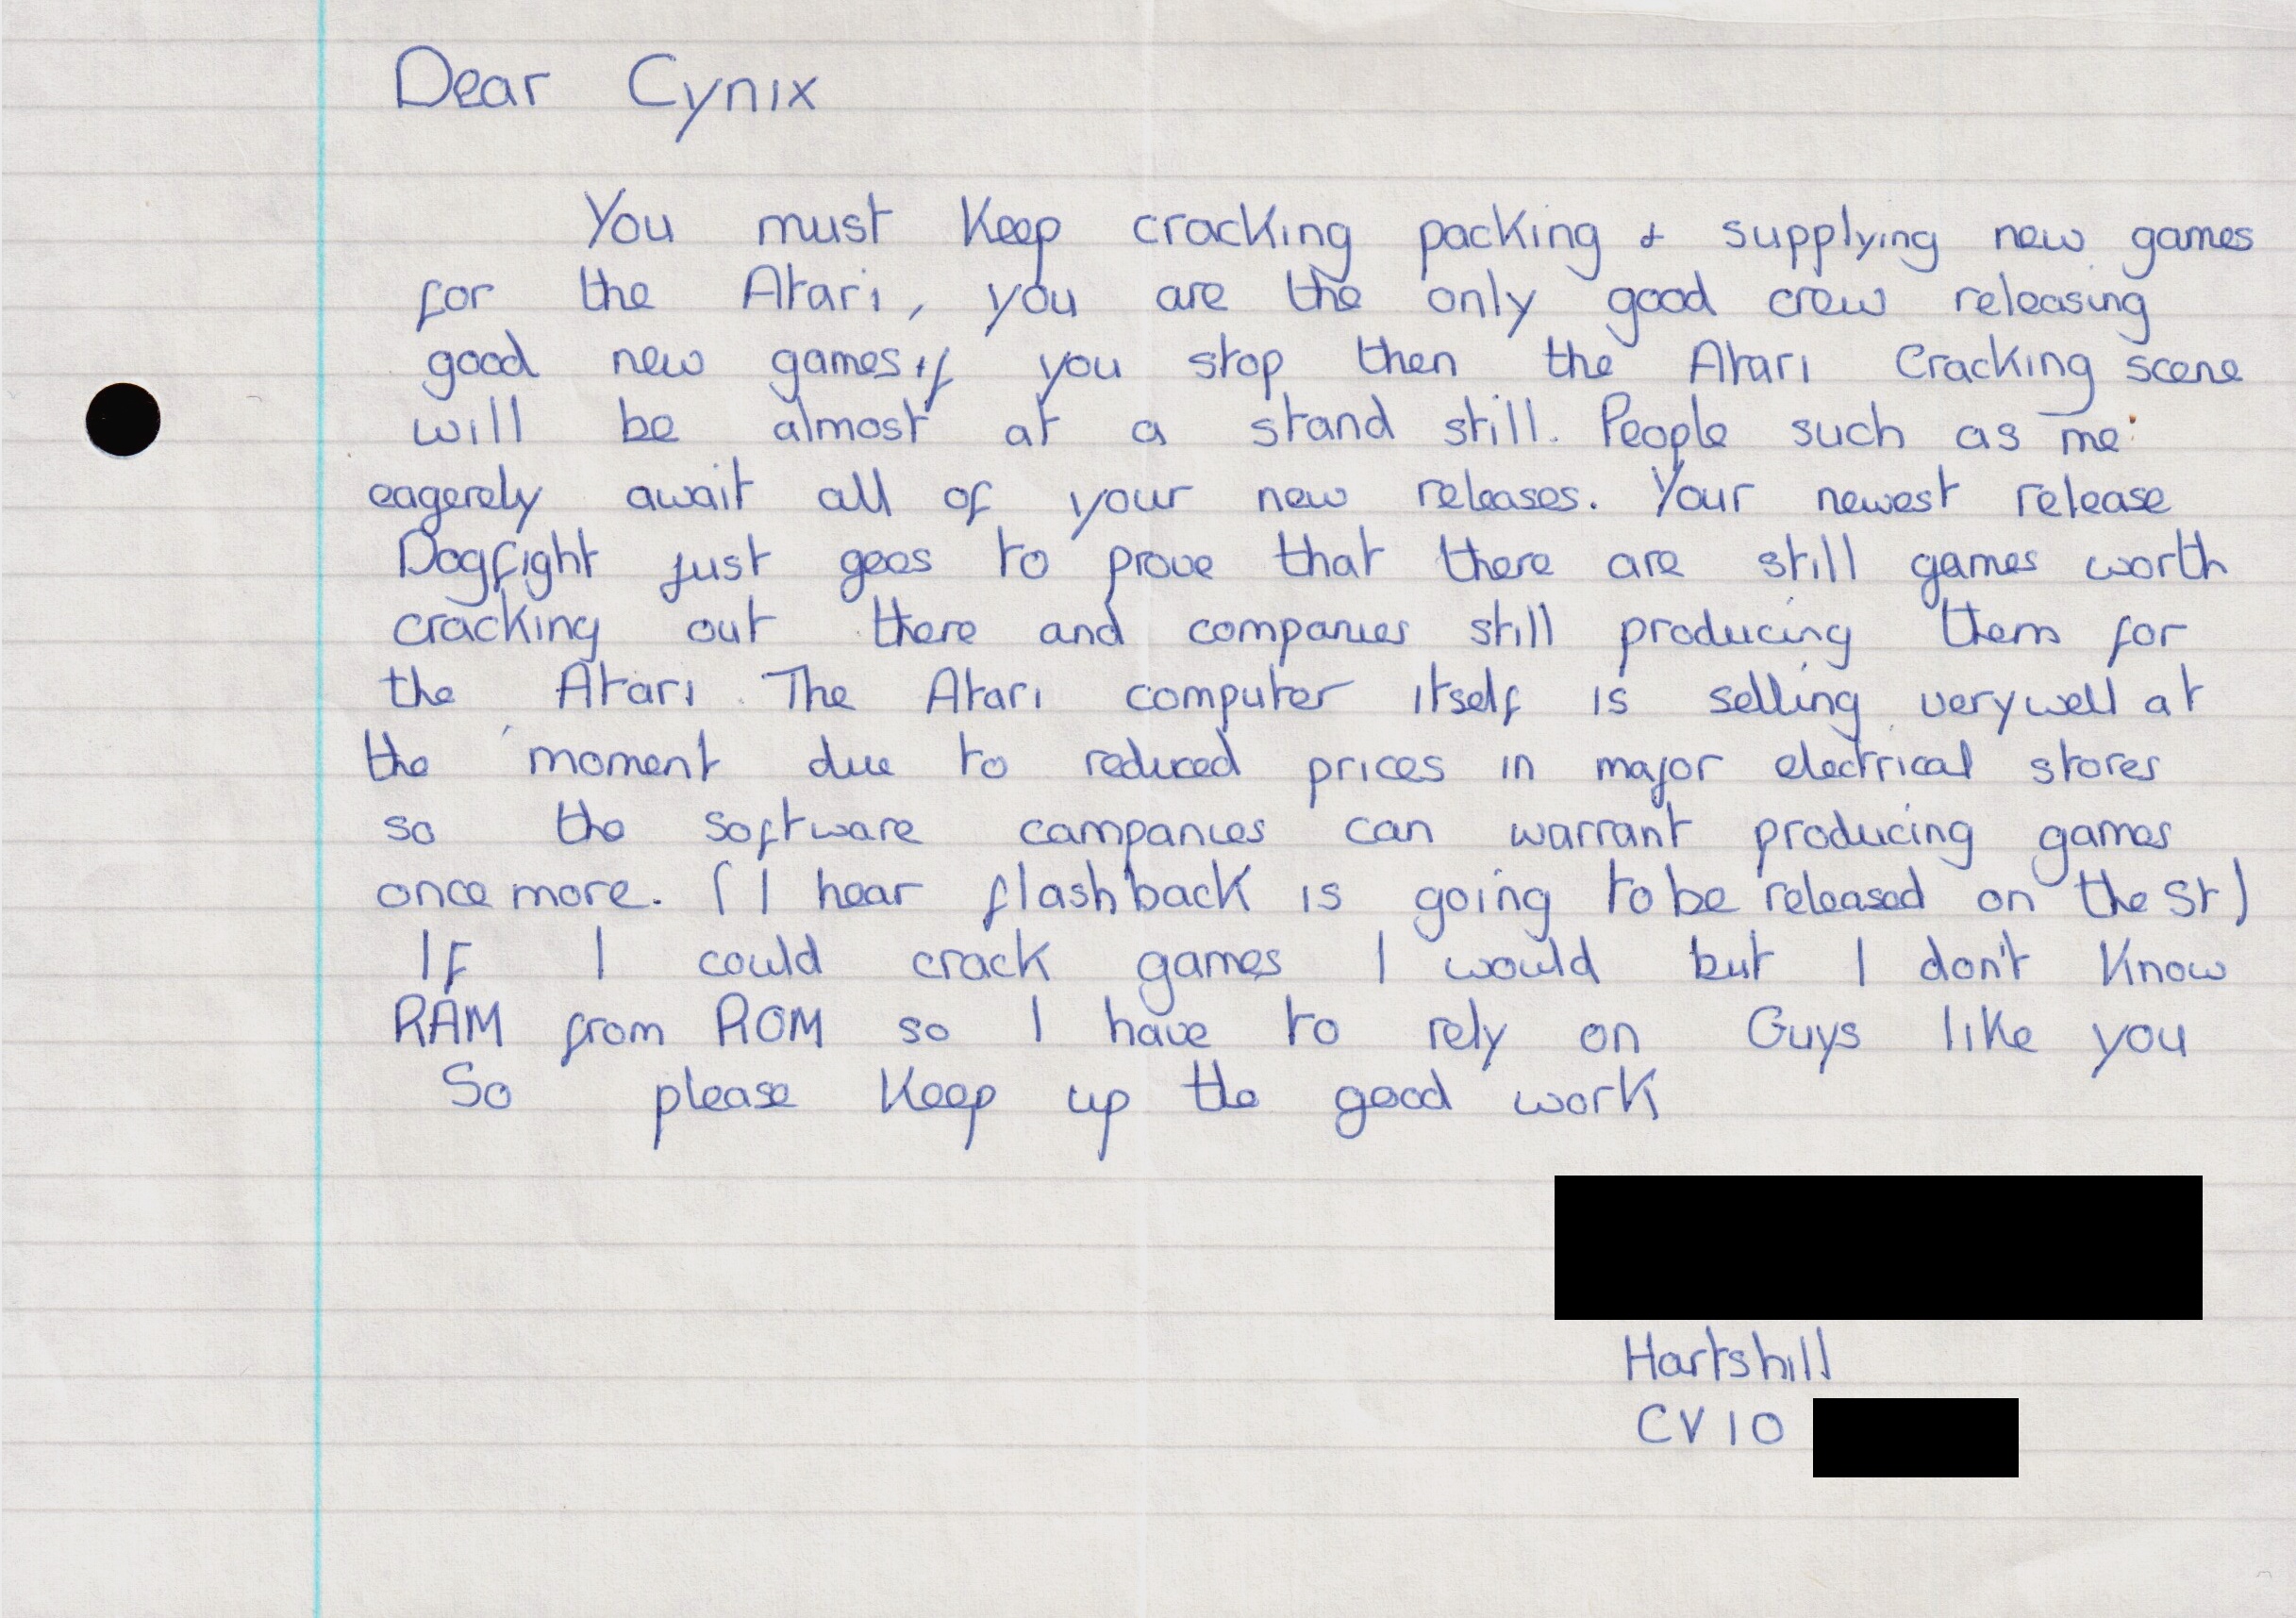 Dear Cynix
You must keep cracking packing & supplying new games
for the Atari, you are the only good crew releasing
good new games if you stop then the Atari Cracking scene
will be almost at a stand still. People such as me
eagerely await all of your new releases. Your newest release
Dogfight just goes to prove that there are still games worth
cracking out there and companies still producing them for
the Atari. The Atari computer itself is selling very well at
the moment due to reduced prices in major electrical stores
so the software companies can warrant producing games
once more. (I hear flashback is going to be released on the St)
If I could crack games I would but I don't know
RAM from ROM so I have to rely on Guys like you
So please keep up the good work
Hartshill
CV10